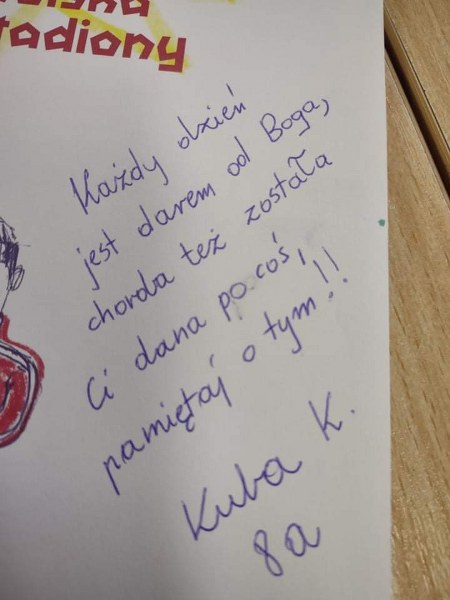 tadiony
Każdy dzień
jest darem od Boga,
chorda też została
Ci dana po coś,
pamiętaj o tym!!
Kuba K.
8a